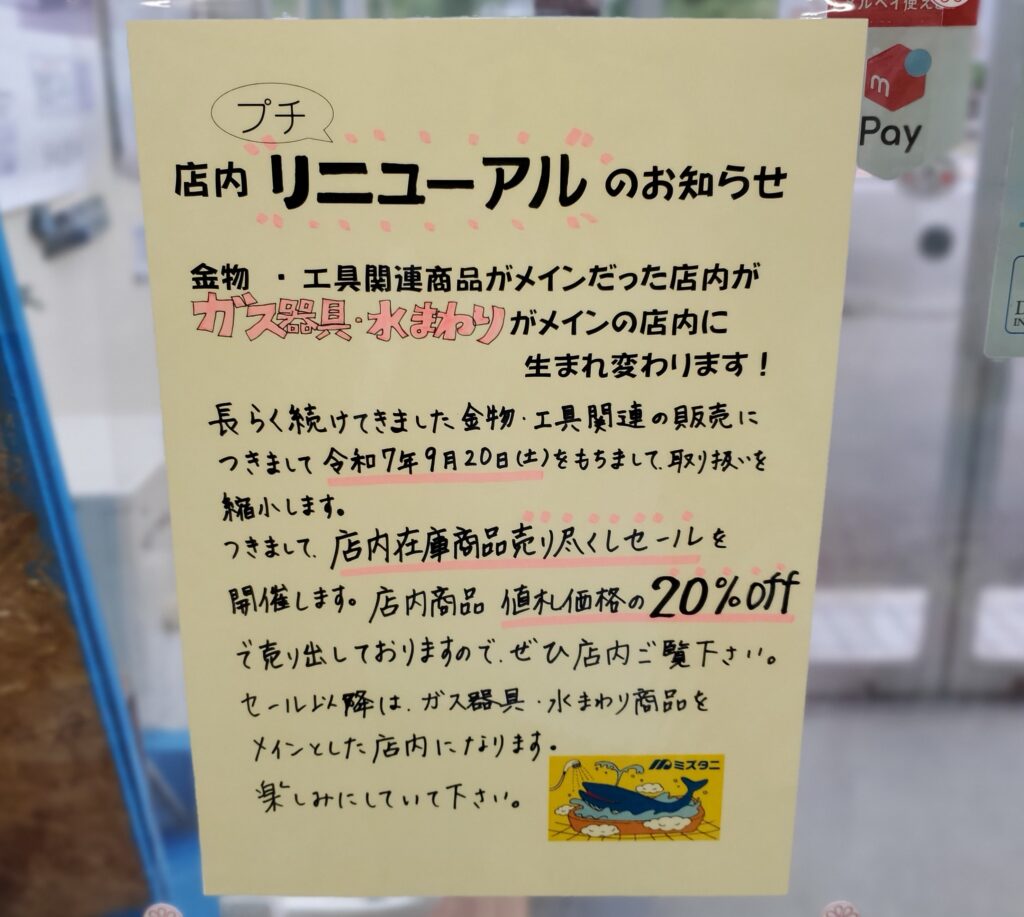 プチ
店内 リニューアル のお知らせ
金物 ・ 工具関連商品がメインだった店内が
ガス器具・水まわりがメインの店内に
生まれ変わります！
長らく続けてきました金物・工具関連の販売に
つきまして令和7年9月20日(土)をもちまして、取り扱いを
縮小します。
つきまして、店内在庫商品売り尽くしセールを
開催します。店内商品 値札価格の20%off
で売り出しておりますので、ぜひ店内ご覧下さい。
セール以降は、ガス器具・水まわり商品を
メインとした店内になります。
楽しみにしていて下さい。
ミズタニ
ルペイ使え
m
Pay